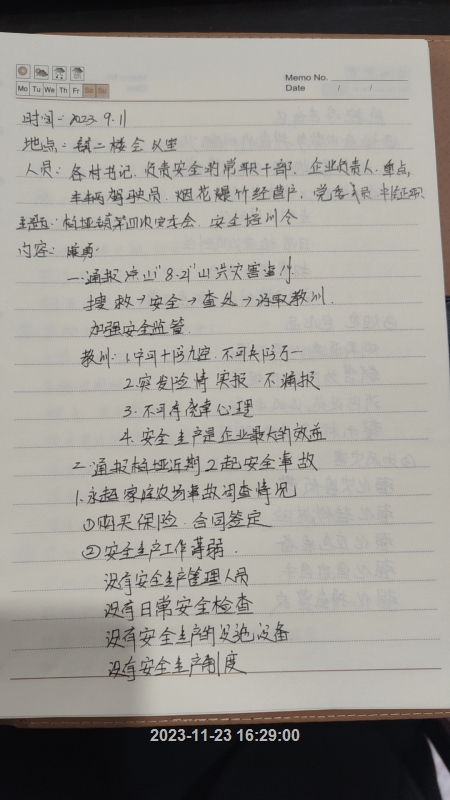 Mo Tu We Th Fr Sa Su
Memo No.
Date / /
时间：2023.9.11
地点：镇二楼会议室
人员：各村书记、负责安全的常职干部、企业负责人、重点
车辆驾驶员、烟花爆竹经营户、党委成员、中层正职
主题：柏垭镇第四次安委会、安全培训会
内容：
一、通报凉山“8·21”山洪灾害事件
搜救→安全→查处→汲取教训.
加强安全监管
教训：1.宁可十防九空，不可失防万一
2.突发险情实报、不漏报
3.不可存侥幸心理
4.安全生产是企业最大的效益
二、通报柏垭近期2起安全事故
1.永超家庭农场事故调查情况
①购买保险、合同签定
②安全生产工作薄弱.
没有安全生产管理人员
没有日常安全检查
没有安全生产的设施设备
没有安全生产制度
2023-11-23 16:29:00